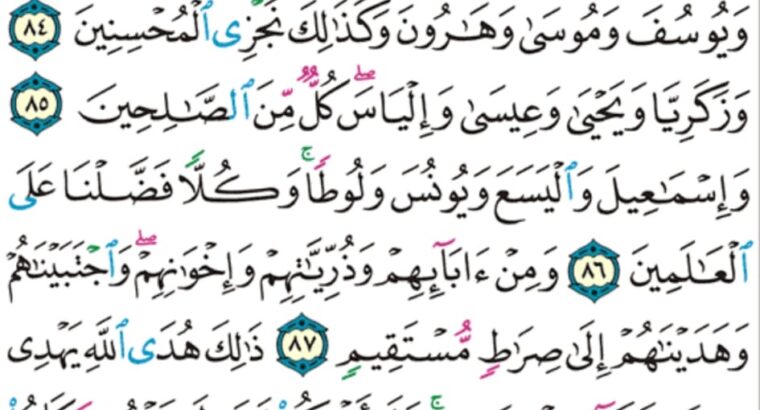 وَيُوسُفَ وَمُوسَىٰ وَهَـٰرُونَ وَكَذَٰلِكَ نَجۡزِى ٱلۡمُحۡسِنِينَ ٨٤
وَزَكَرِيَّا وَيَحۡيَىٰ وَعِيسَىٰ وَإِلۡيَاسَۖ كُلࣱّ مِّنَ ٱلصَّـٰلِحِينَ ٨٥
وَإِسۡمَـٰعِيلَ وَٱلۡيَسَعَ وَيُونُسَ وَلُوطࣰاۚ وَكُلࣰّا فَضَّلۡنَا عَلَى
ٱلۡعَـٰلَمِينَ ٨٦ وَمِنۡ ءَابَاۤىِٕهِمۡ وَذُرِّيَّـٰتِهِمۡ وَإِخۡوَٰنِهِمۡۖ وَٱجۡتَبَيۡنَـٰهُمۡ
وَهَدَيۡنَـٰهُمۡ إِلَىٰ صِرَٰطࣲ مُّسۡتَقِيمࣲ ٨٧ ذَٰلِكَ هُدَى ٱللَّهِ يَهۡدِى